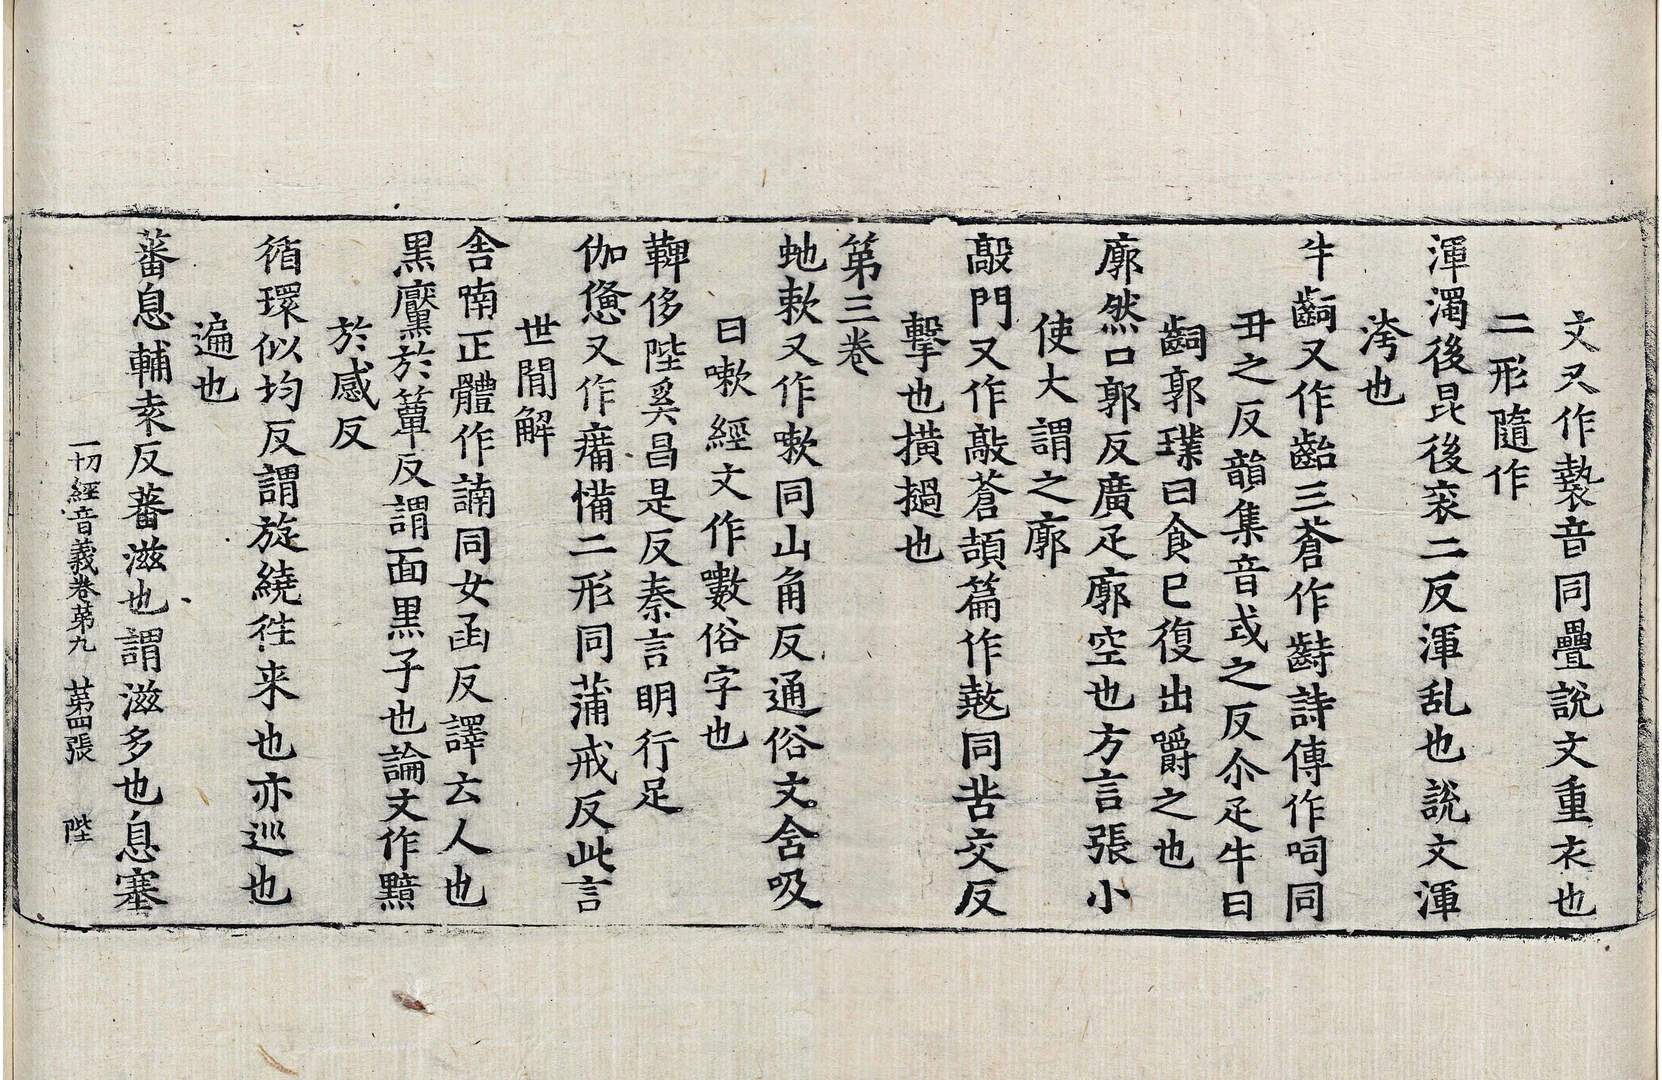 文又作褺音同疊說文重衣也
二形隨作
渾濁後昆後衮二反渾乱也說文渾
洿也
牛齝又作齝三蒼作齝詩傳作呞同
丑之反韻集音式之反尒疋牛曰
齝郭璞曰食巳復出嚼之也
廓然口郭反廣疋廓空也方言張小
使大謂之廓
敲門又作敲蒼頡篇作㪣同苦交反
擊也摸撾也
第三卷
虵欶又作嗽同山角反通俗文含吸
曰嗽經文作㰒俗字也
鞞侈陛奚昌是反秦言明行足
伽憊又作㾟㣁二形同蒲戒反此言
世間解
舍喃正體作諵同女函反譯云人也
黑黡於簟反謂面黑子也論文作黯
於感反
循環似均反謂旋繞往来也亦巡也
遍也
蕃息輔袁反蕃滋也謂滋多也息塞
一切經音義卷第九 第四張 陛